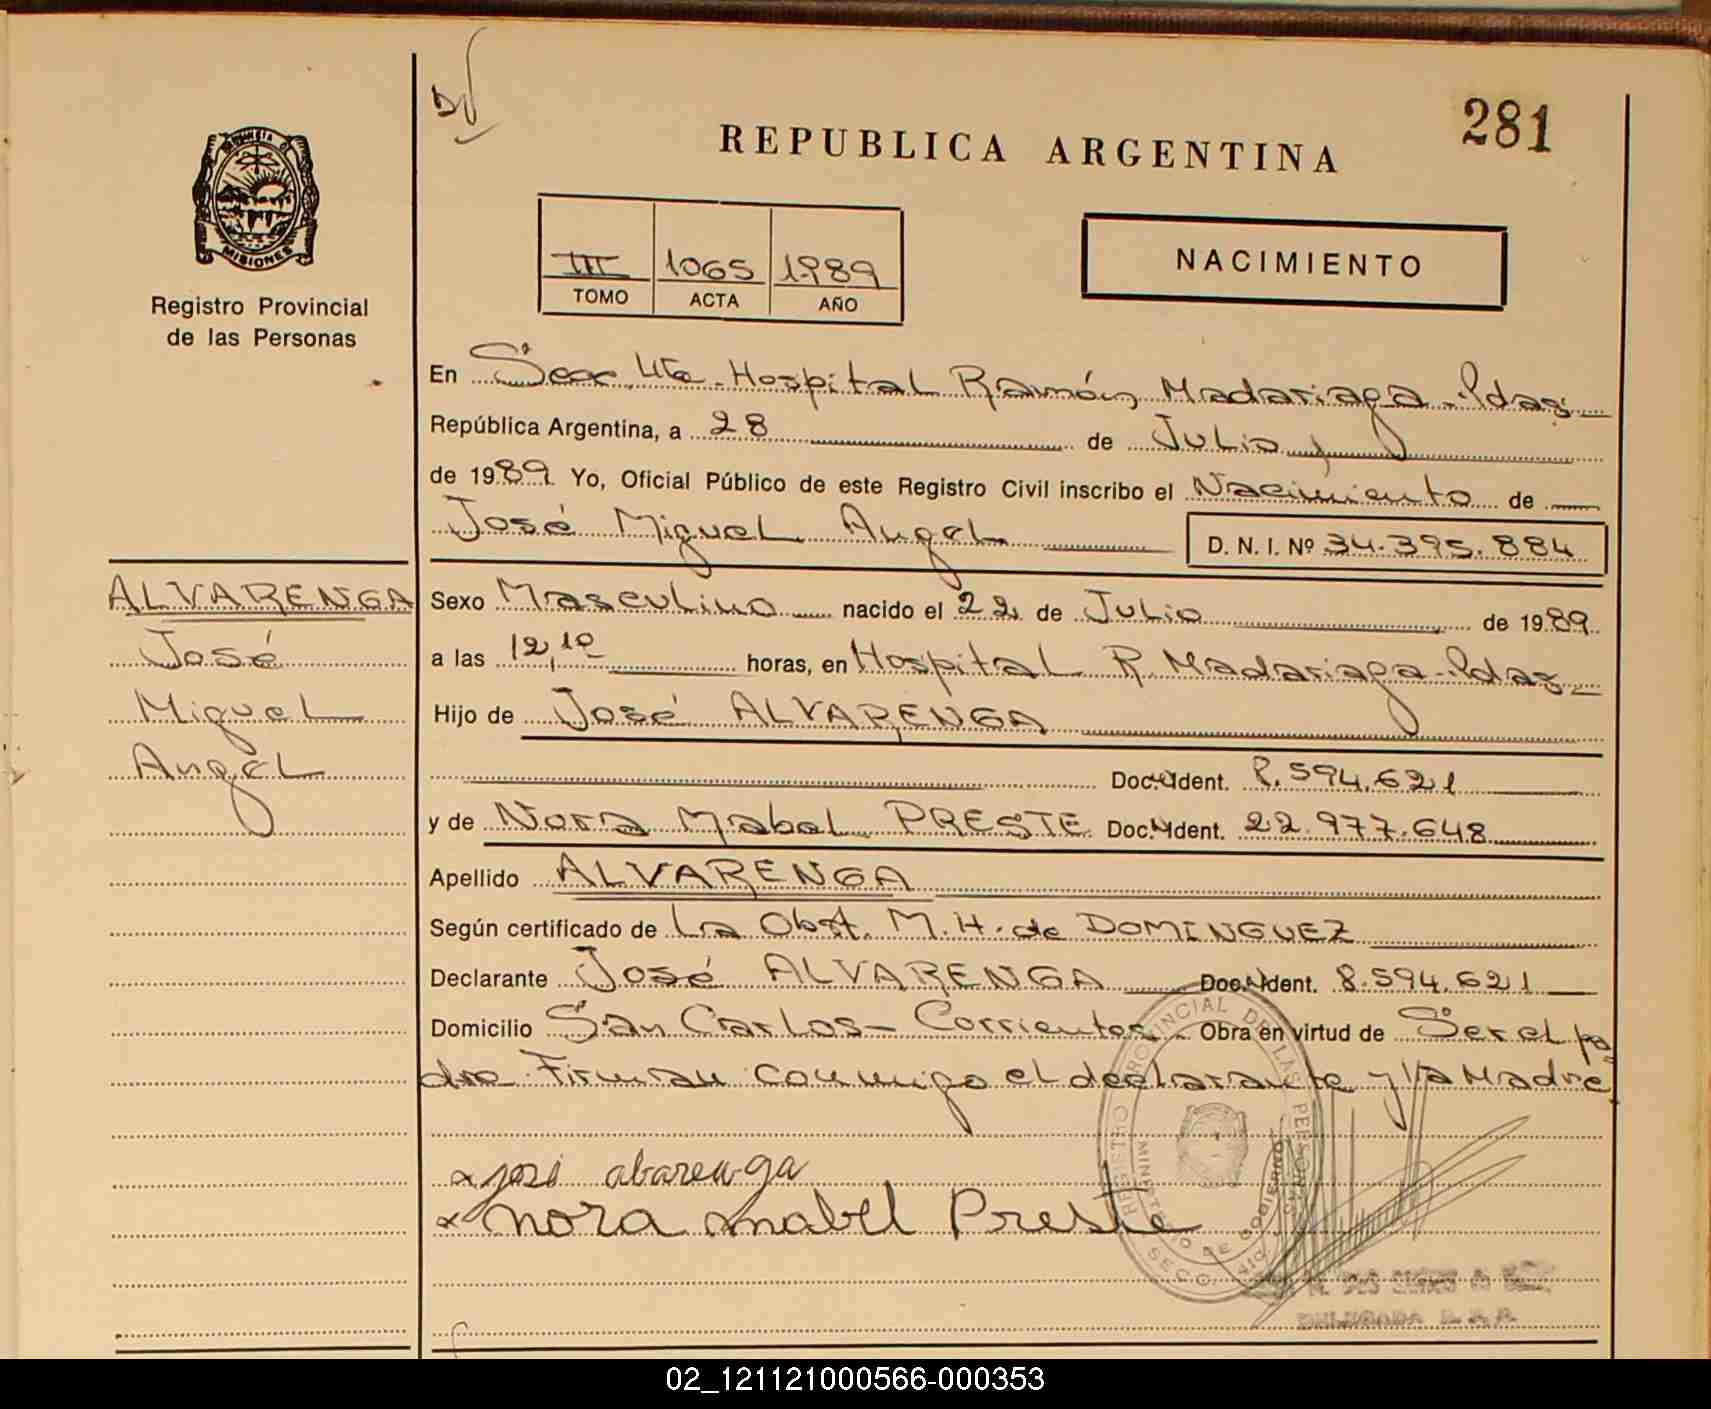 281
REPUBLICA ARGENTINA
PROVINCIA DE
MISIONES
Registro Provincial
de las Personas
III 1065 1989
TOMO ACTA AÑO
NACIMIENTO
En Secc. 4ta. Hospital Ramón Madariaga - Pdas -
República Argentina, a 28 de Julio
de 1989. Yo, Oficial Público de este Registro Civil inscribo el Nacimiento de
José Miguel Angel D. N. I. Nº 34.395.884
ALVARENGA
José
Miguel
Angel
Sexo Masculino nacido el 22 de Julio de 1989
a las 12,10 horas, en Hospital R. Madariaga - Pdas -
Hijo de José ALVARENGA
Doc. Ident. 8.594.621
y de Nora Mabel PRESTE Doc. Ident. 22.977.648
Apellido ALVARENGA
Según certificado de La Obst. M. H. de DOMINGUEZ
Declarante José ALVARENGA Doc. Ident. 8.594.621
Domicilio San Carlos - Corrientes - Obra en virtud de Ser el pa-
dre Firman conmigo el declarante y la Madre.
x josi abarenga
x nora mabel Preste
REGISTRO PROVINCIAL DE LAS PERSONAS
MINISTERIO DE GOBIERNO
DELEGADA
02_121121000566-000353